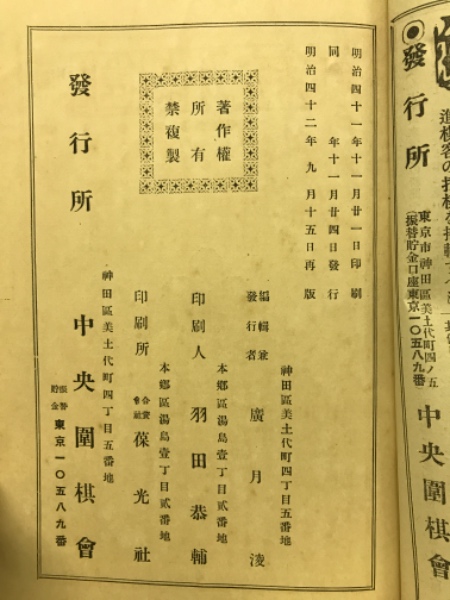 進棋客の
◉發行所
東京市神田區美土代町四ノ五
(振替貯金口座東京一〇五八九番)
中央圍棋會
明治四十一年十一月廿一日印刷
同年十一月廿四日發行
明治四十二年九月十五日再版
著作權
所有
禁複製
神田區美土代町四丁目五番地
編輯兼
發行者
廣月凌
本鄕區湯島壹丁目貳番地
印刷人 羽田恭輔
本鄕區湯島壹丁目貳番地
印刷所 合資會社 葆光社
神田區美土代町四丁目五番地
發行所 中央圍棋會
振替貯金 東京一〇五八九番